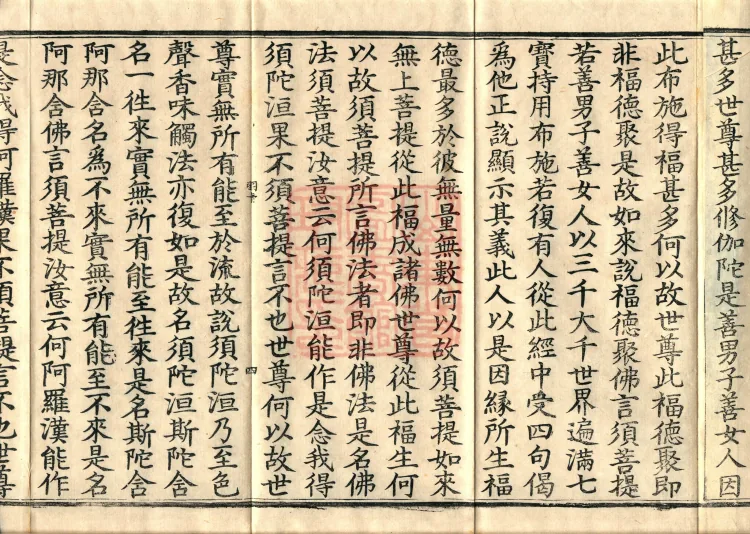 甚多世尊甚多修伽陀是善男子善女人因
此布施得福甚多何以故世尊此福德聚即
非福德聚是故如來說福德聚佛言須菩提
若善男子善女人以三千大千世界遍滿七
寶持用布施若復有人從此經中受四句偈
爲他正說顯示其義此人以是因緣所生福
德最多於彼無量無數何以故須菩提如來
無上菩提從此福成諸佛世尊從此福生何
以故須菩提所言佛法者即非佛法是名佛
法須菩提汝意云何須陀洹能作是念我得
須陀洹果不須菩提言不也世尊何以故世
四
尊實無所有能至於流故說須陀洹乃至色
聲香味觸法亦復如是故名須陀洹斯陀含
名一徃來實無所有能至徃來是名斯陀含
阿那含名爲不來實無所有能至不來是名
阿那含佛言須菩提汝意云何阿羅漢能作
是念我得阿羅漢果不須菩提言不也世尊